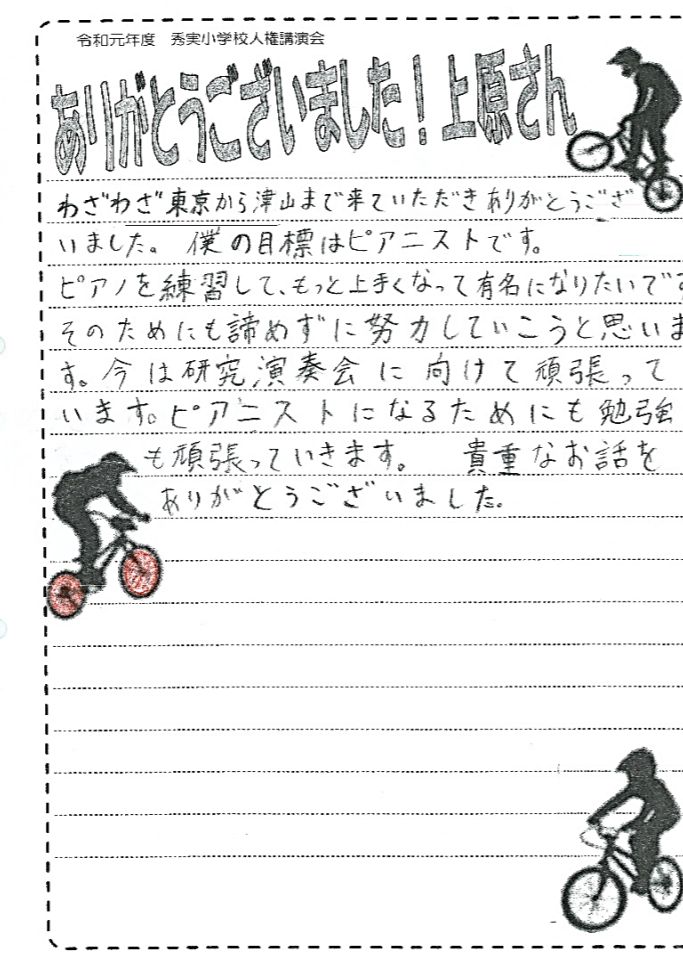 令和元年度　秀実小学校人権講演会
ありがとうございました！上原さん
わざわざ東京から津山まで来ていただきありがとうござ
いました。僕の目標はピアニストです。
ピアノを練習して、もっと上手くなって有名になりたいです
そのためにも諦めずに努力していこうと思いま
す。今は研究演奏会に向けて頑張って
います。ピアニストになるためにも勉強
も頑張っていきます。　貴重なお話を
ありがとうございました。